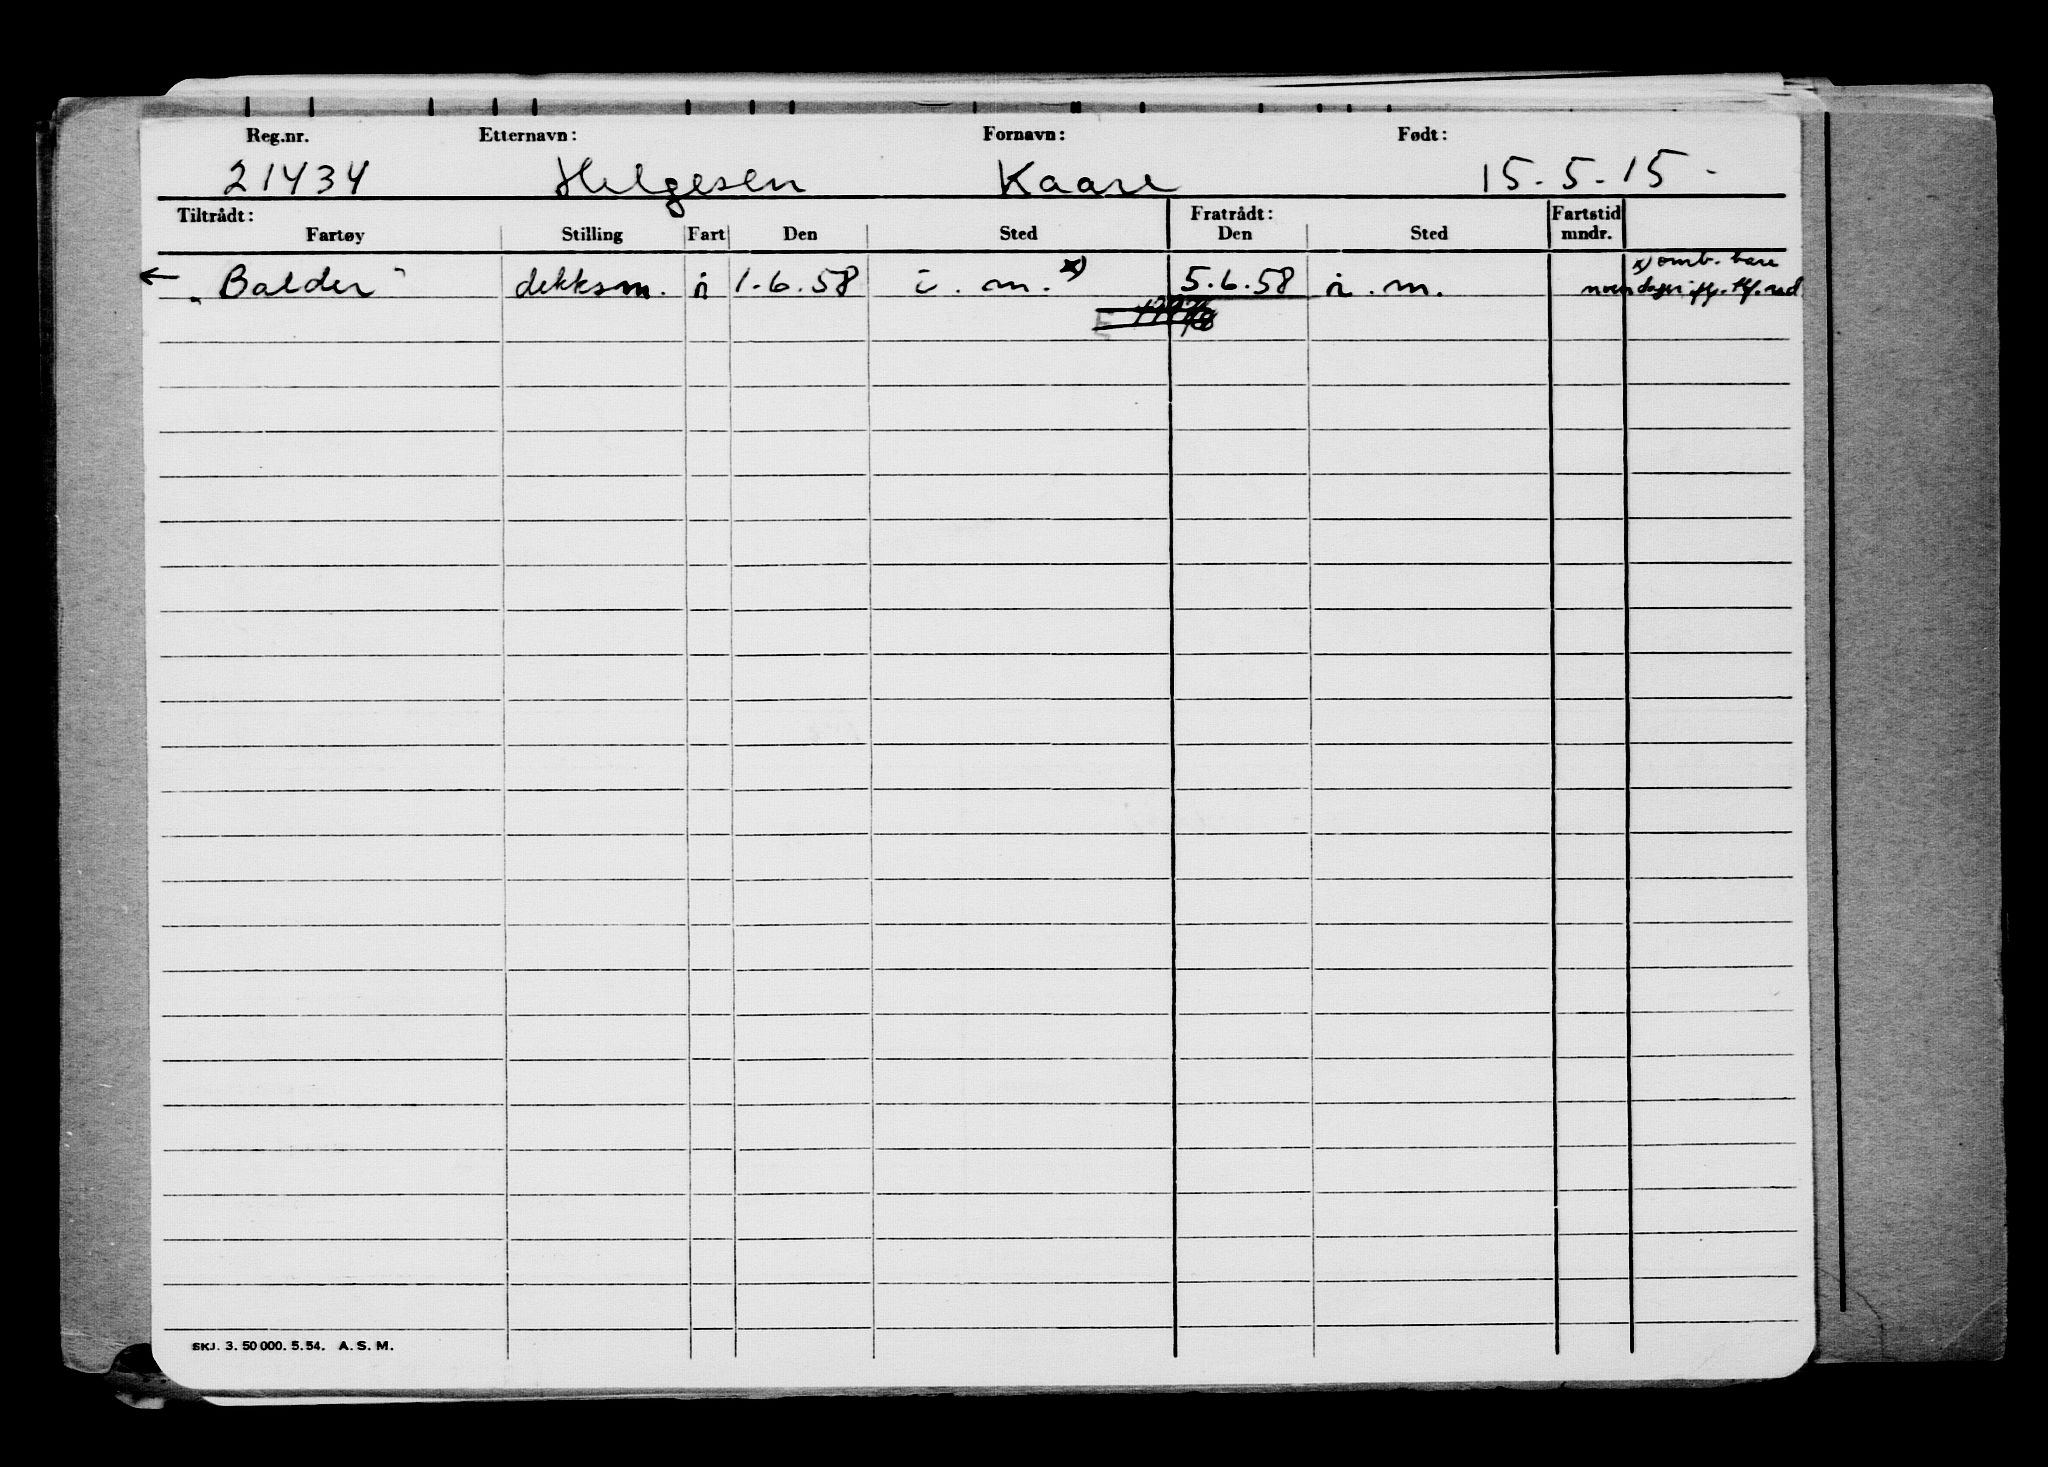 Reg.nr. Etternavn: Fornavn: Født:
21434 Helgesen Kaare 15-5-15-
Tiltrådt: Fratrådt: Fartstid
Fartøy Stilling Fart Den Sted Den Sted mndr.
x) omb. bare
← "Balder" dekksm. i 1.6.58 i.m. x) 5.6.58 i.m. noen dager iflg. tlf. red
SKJ. 3. 50 000. 5. 54. A. S. M.